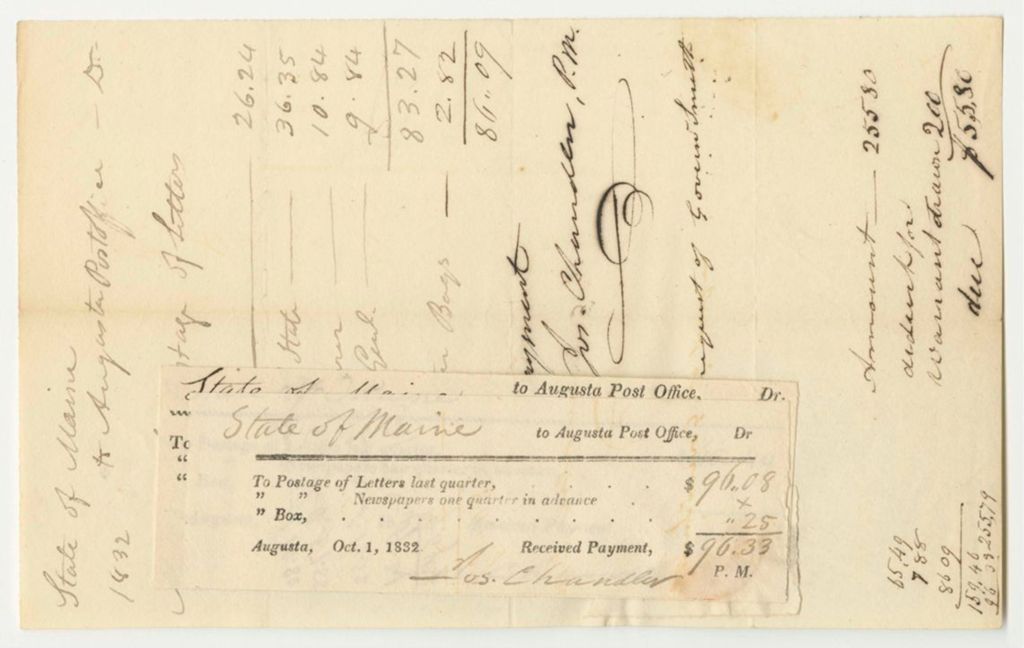 State of Maine
to Augusta Post office — Dr.
1832
of Letters
26.24
State — 36.35
10.84
Genl. — 9.84
83.27
Bags — 2.82
86.09
Jos. Chandler, P.M.
request of Govern Smith
Amount — 255 80
deduct for
warrant drawn 200
due $55,80
65.49
7 88
86 09
159.46
96 33 255,79
State of Maine to Augusta Post Office, Dr.
To
"
"
State of Maine to Augusta Post Office, Dr
To Postage of Letters last quarter, . . . $ 96.08
" " Newspapers one quarter in advance x
" Box, . . . . . . . . " 25
Augusta, Oct. 1, 1832 Received Payment, $ 96.33
Jos. Chandler P. M.